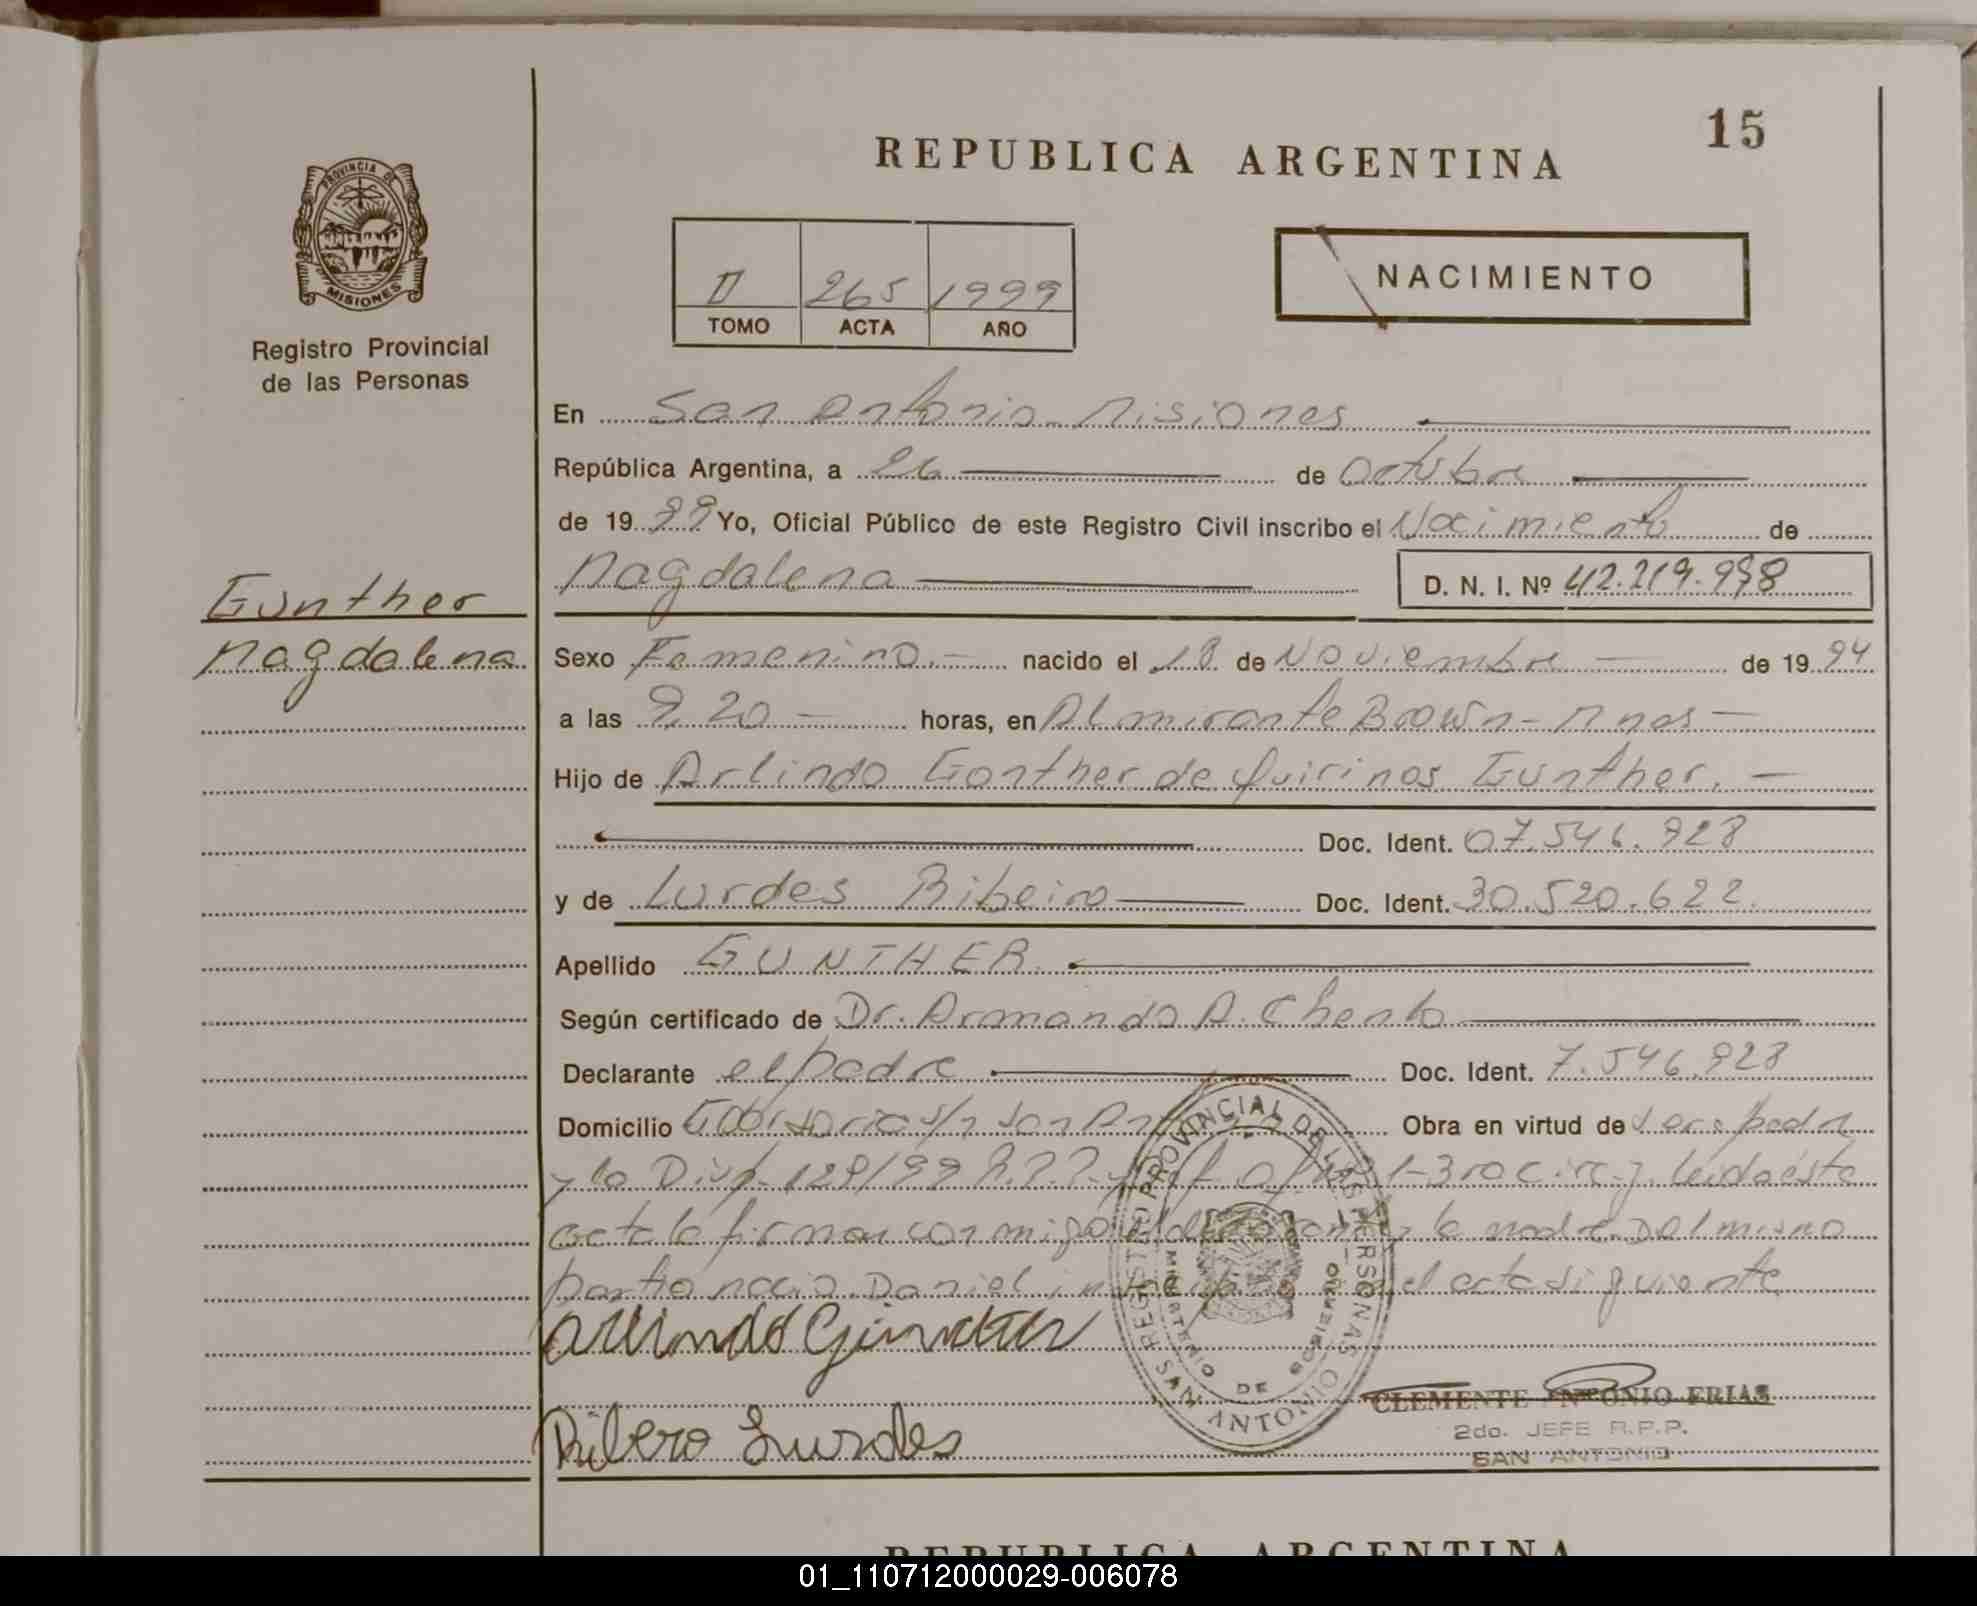 15
REPUBLICA ARGENTINA
PROVINCIA DE
MISIONES
Registro Provincial
de las Personas
II 265 1999
TOMO ACTA AÑO
NACIMIENTO
En San Antonio - Misiones
República Argentina, a 26 de Octubre
de 1999 Yo, Oficial Público de este Registro Civil inscribo el Nacimiento de
Magdalena D. N. I. Nº 42.219.998
Gunther
Magdalena
Sexo Femenino.- nacido el 18 de Noviembre de 1994
a las 9,20 horas, en Almirante Brown - Mnes
Hijo de Arlindo Gonther de Quirinos Gunther.
Doc. Ident. 07.546.928
y de Lurdes Ribeiro Doc. Ident. 30.520.622
Apellido GUNTHER.
Según certificado de Dr. Armando A.
Declarante el padre Doc. Ident. 7.546.928
Domicilio s/n San Obra en virtud de padre
y la Disp. 129/99 R.P.P. leida ésta
acta la firman conmigo la madre. Del mismo
parto nacio Daniel, el acta siguiente
Arlindo Günther
Ribero Lurdes
REGISTRO PROVINCIAL DE LAS PERSONAS
MINISTERIO DE GOBIERNO
SAN ANTONIO
CLEMENTE ANTONIO FRIAS
2do. JEFE R.P.P.
SAN ANTONIO
REPUBLICA ARGENTINA
01_110712000029-006078